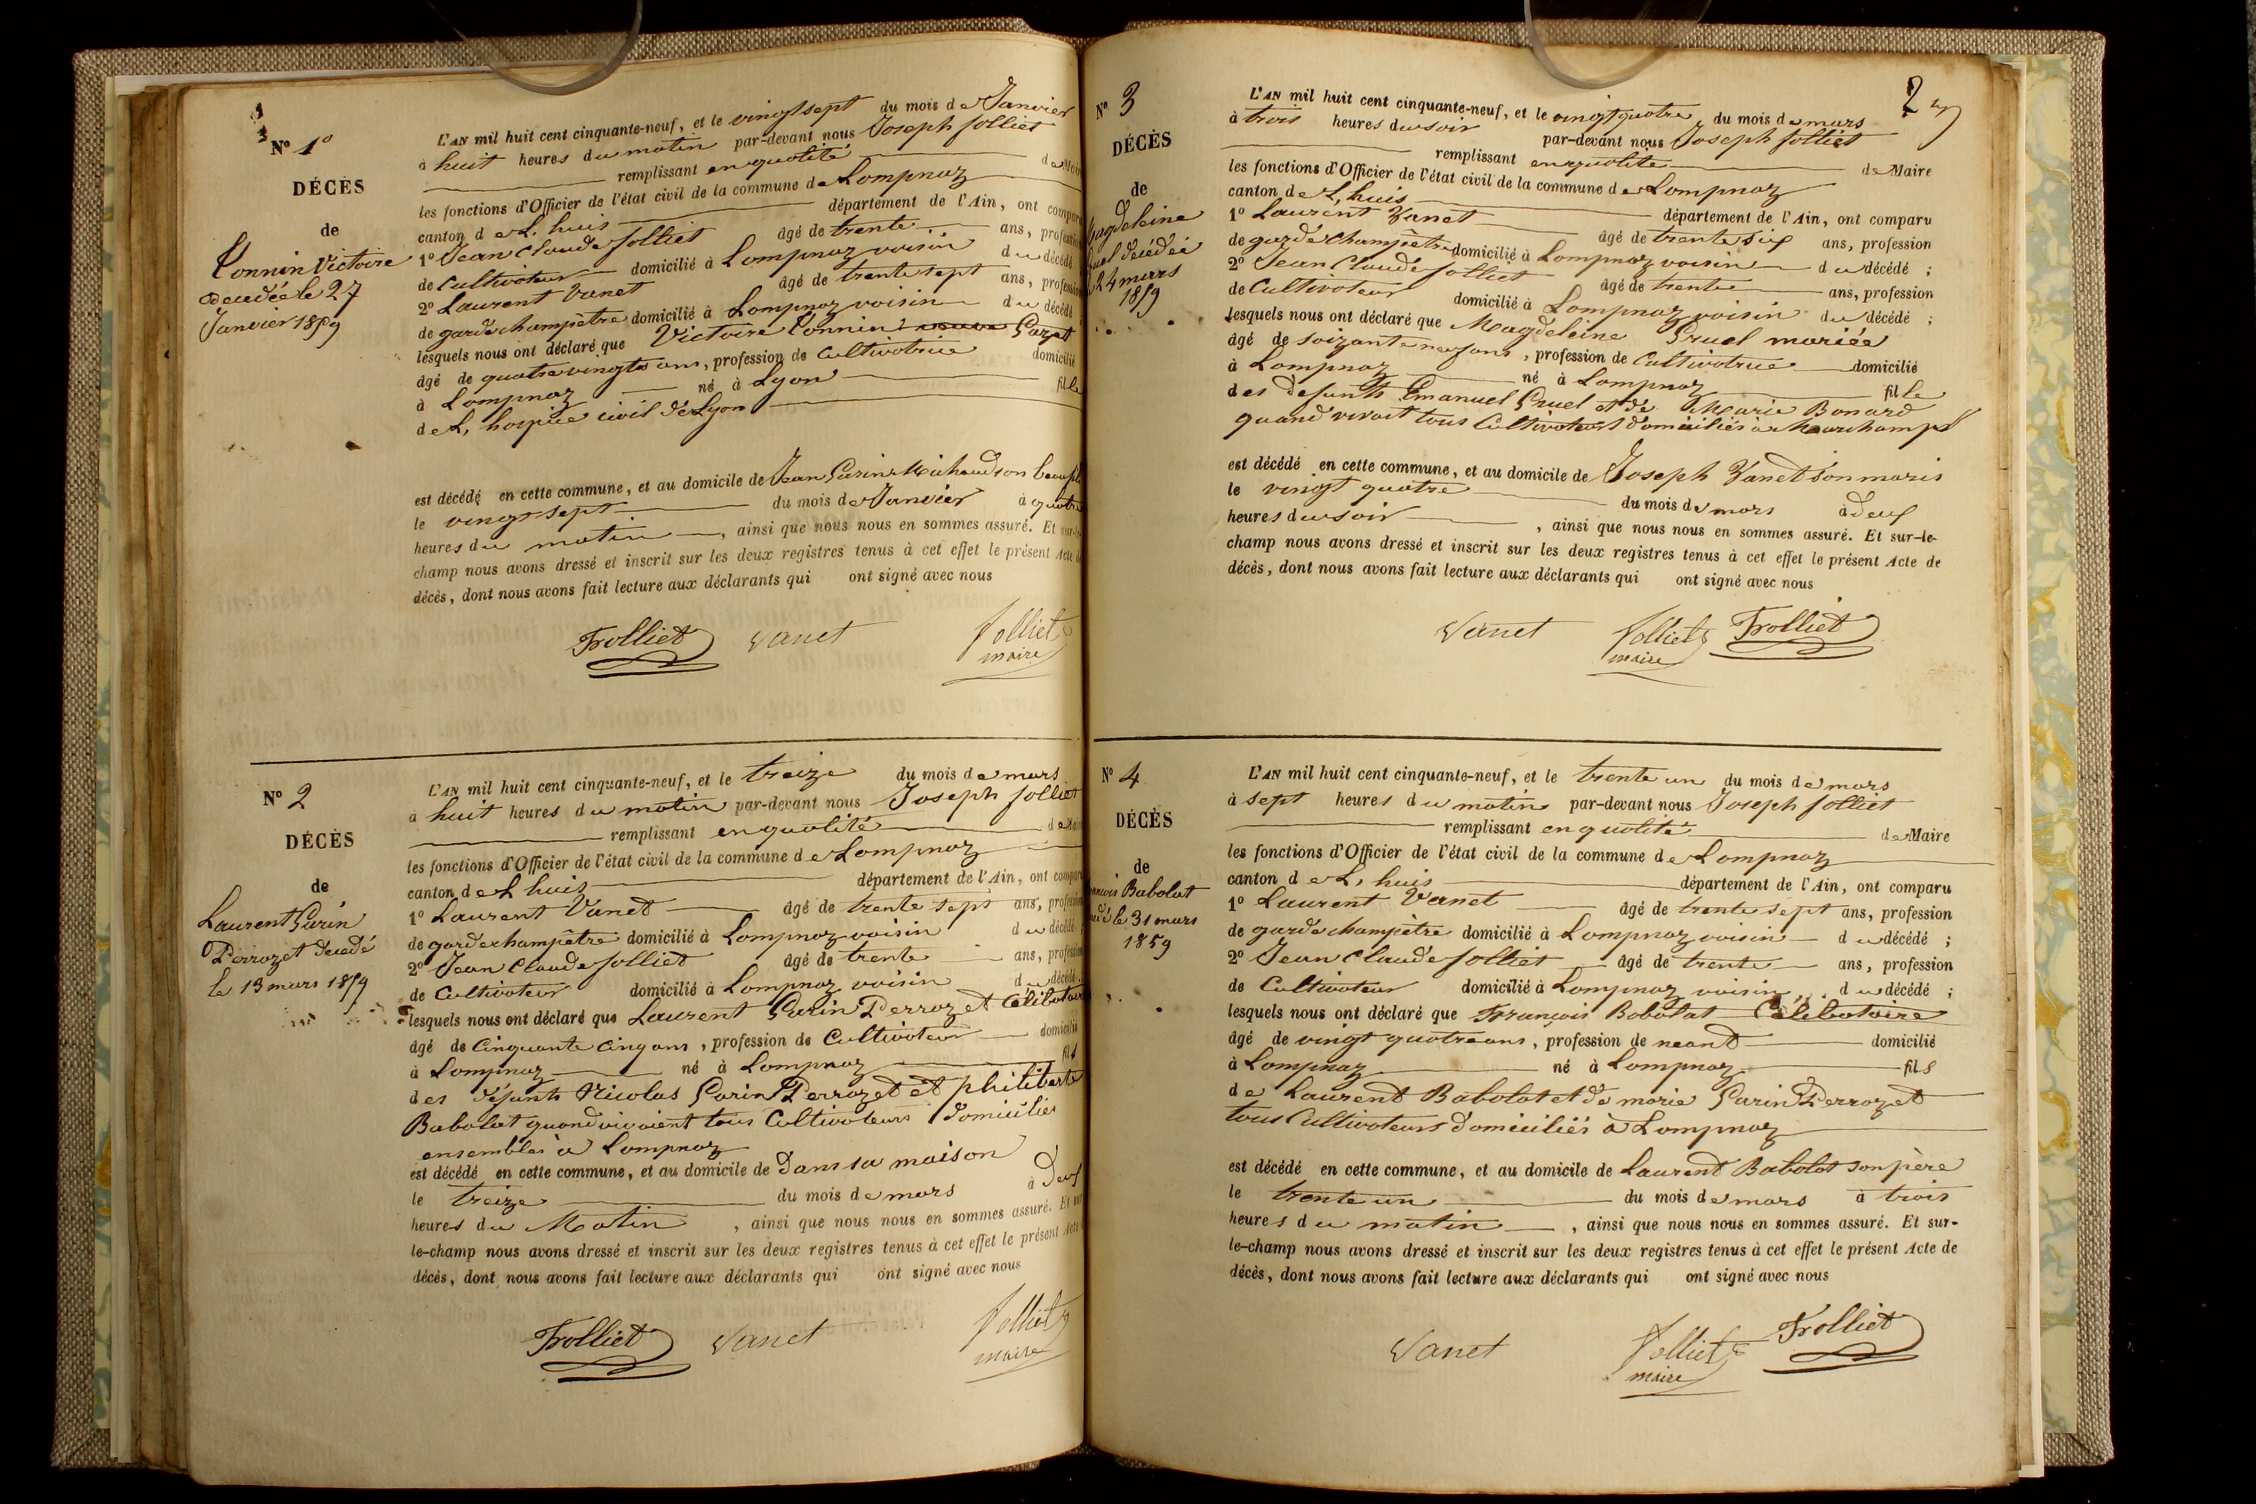 Nº 1º
DÉCÈS
de
Connin Victoire
decedée le 27
Janvier 1859
L'AN mil huit cent cinquante-neuf, et le vingt sept du mois de Janvier
à huit heures du matin par-devant nous Joseph Jolliet
remplissant en qualité de Maire
les fonctions d'Officier de l'état civil de la commune de Lompnaz
canton de L, huis département de l'Ain, ont comparu
1º Jean Claude Jolliet âgé de trente ans, profession
de Cultivateur domicilié à Lompnaz voisin du décédé
2º Laurent Vanet âgé de trente sept ans, profession
de garde champêtre domicilié à Lompnaz voisin du décédé
lesquels nous ont déclaré que Victoire Connin veuve
âgé de quatre vingts ans, profession de Cultivatrice domicilié
à Lompnaz né à Lyon fille
de L, hospice civil de Lyon
est décédé en cette commune, et au domicile de Jean Gurin Michaud son beau fils
le vingt sept du mois de Janvier à quatre
heures du matin, ainsi que nous nous en sommes assuré. Et sur-le-
champ nous avons dressé et inscrit sur les deux registres tenus à cet effet le présent Acte de
décès, dont nous avons fait lecture aux déclarants qui ont signé avec nous
Trolliet Vanet Jolliet
maire
Nº 2
DÉCÈS
de
Laurent Gurin
Perrozet decedé
le 13 mars 1859
L'AN mil huit cent cinquante-neuf, et le treize du mois de mars
à huit heures du matin par-devant nous Joseph Jolliet
remplissant en qualité de Maire
les fonctions d'Officier de l'état civil de la commune de Lompnaz
canton de L huis département de l'Ain, ont comparu
1º Laurent Vanet âgé de trente sept ans, profession
de garde champêtre domicilié à Lompnaz voisin du décédé
2º Jean Claude Jolliet âgé de trente ans, profession
de Cultivateur domicilié à Lompnaz voisin du décédé
lesquels nous ont déclaré que Laurent Gurin Perrozet Célibataire
âgé de Cinquante Cinq ans, profession de Cultivateur domicilié
à Lompnaz né à Lompnaz fils
des défunts Nicolas Gurin Perrozet et philiberte
Babolat quand vivaient tous Cultivateurs domiciliés
ensembles à Lompnaz
est décédé en cette commune, et au domicile de dans sa maison
le treize du mois de mars à deux
heures du Matin, ainsi que nous nous en sommes assuré. Et sur-
le-champ nous avons dressé et inscrit sur les deux registres tenus à cet effet le présent Acte de
décès, dont nous avons fait lecture aux déclarants qui ont signé avec nous
Trolliet Vanet Jolliet
maire
2
Nº 3
DÉCÈS
de
Magdeleine
Gruel decédée
le 24 mars
1859
L'AN mil huit cent cinquante-neuf, et le vingt quatre du mois de mars
à trois heures du soir par-devant nous Joseph Jolliet
remplissant en qualité de Maire
les fonctions d'Officier de l'état civil de la commune de Lompnaz
canton de L, huis département de l'Ain, ont comparu
1º Laurent Vanet âgé de trente six ans, profession
de garde champêtre domicilié à Lompnaz voisin du décédé ;
2º Jean Claude Jolliet âgé de trente ans, profession
de Cultivateur domicilié à Lompnaz voisin du décédé ;
lesquels nous ont déclaré que Magdeleine Gruel mariée
âgé de soizante neuf ans, profession de Cultivatrice domicilié
à Lompnaz né à Lompnaz fille
des defunts Emanuel Gruel et de Marie Bonard
quand vivait tous Cultivateurs domiciliés à Marchamps
est décédé en cette commune, et au domicile de Joseph Vanet son maris
le vingt quatre du mois de mars à deux
heures du soir, ainsi que nous nous en sommes assuré. Et sur-le-
champ nous avons dressé et inscrit sur les deux registres tenus à cet effet le présent Acte de
décès, dont nous avons fait lecture aux déclarants qui ont signé avec nous
Vanet Jolliet Trolliet
maire
Nº 4
DÉCÈS
de
François Babolat
le 31 mars
1859
L'AN mil huit cent cinquante-neuf, et le trente un du mois de mars
à sept heures du matin par-devant nous Joseph Jolliet
remplissant en qualité de Maire
les fonctions d'Officier de l'état civil de la commune de Lompnaz
canton de L, huis département de l'Ain, ont comparu
1º Laurent Vanet âgé de trente sept ans, profession
de garde champêtre domicilié à Lompnaz voisin du décédé ;
2º Jean Claude Jolliet âgé de trente ans, profession
de Cultivateur domicilié à Lompnaz voisin du décédé ;
lesquels nous ont déclaré que François Babolat Célibataire
âgé de vingt quatre ans, profession de neant domicilié
à Lompnaz né à Lompnaz fils
de Laurent Babolat et de marie Gurin Perrozet
tous Cultivateurs domiciliés à Lompnaz
est décédé en cette commune, et au domicile de Laurent Babolat son père
le trente un du mois de mars à trois
heures du matin, ainsi que nous nous en sommes assuré. Et sur-
le-champ nous avons dressé et inscrit sur les deux registres tenus à cet effet le présent Acte de
décès, dont nous avons fait lecture aux déclarants qui ont signé avec nous
Vanet Jolliet Trolliet
maire